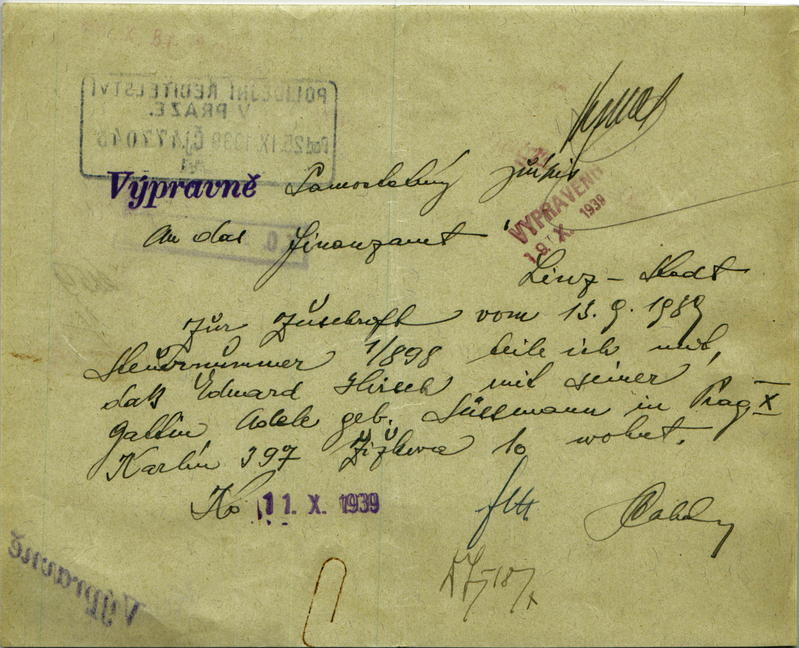 POLICEJNÍ ŘEDITELSTVÍ
V PRAZE.
Došlo 25.IX.1939 Čj. 477045
Výpravně Samostatný přípis
VYPRAVENO
19. X. 1939
An das Finanzamt
Linz – Stadt
Zur Zuschrift vom 13.9.1939
Steuernummer 1/898 teile ich mit,
daß Eduard Hirsch mit seiner
Gattin, Adele geb. Süssmann in Prag X
Karlín 397 Žižkova 10 wohnt.
11. X. 1939
Výpravně